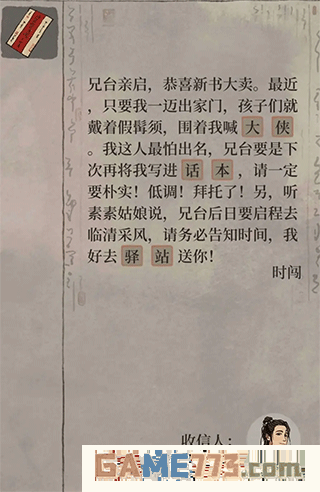 兄台亲启，恭喜新书大卖。最近
，只要我一迈出家门，孩子们就
戴着假髯须，围着我喊大侠
。我这人最怕出名，兄台要是下
次再将我写进话本，请一定
要朴实！低调！拜托了！另，听
素素姑娘说，兄台后日要启程去
临清采风，请务必告知时间，我
好去驿站送你！
时闯
收信人：
GAME773.com